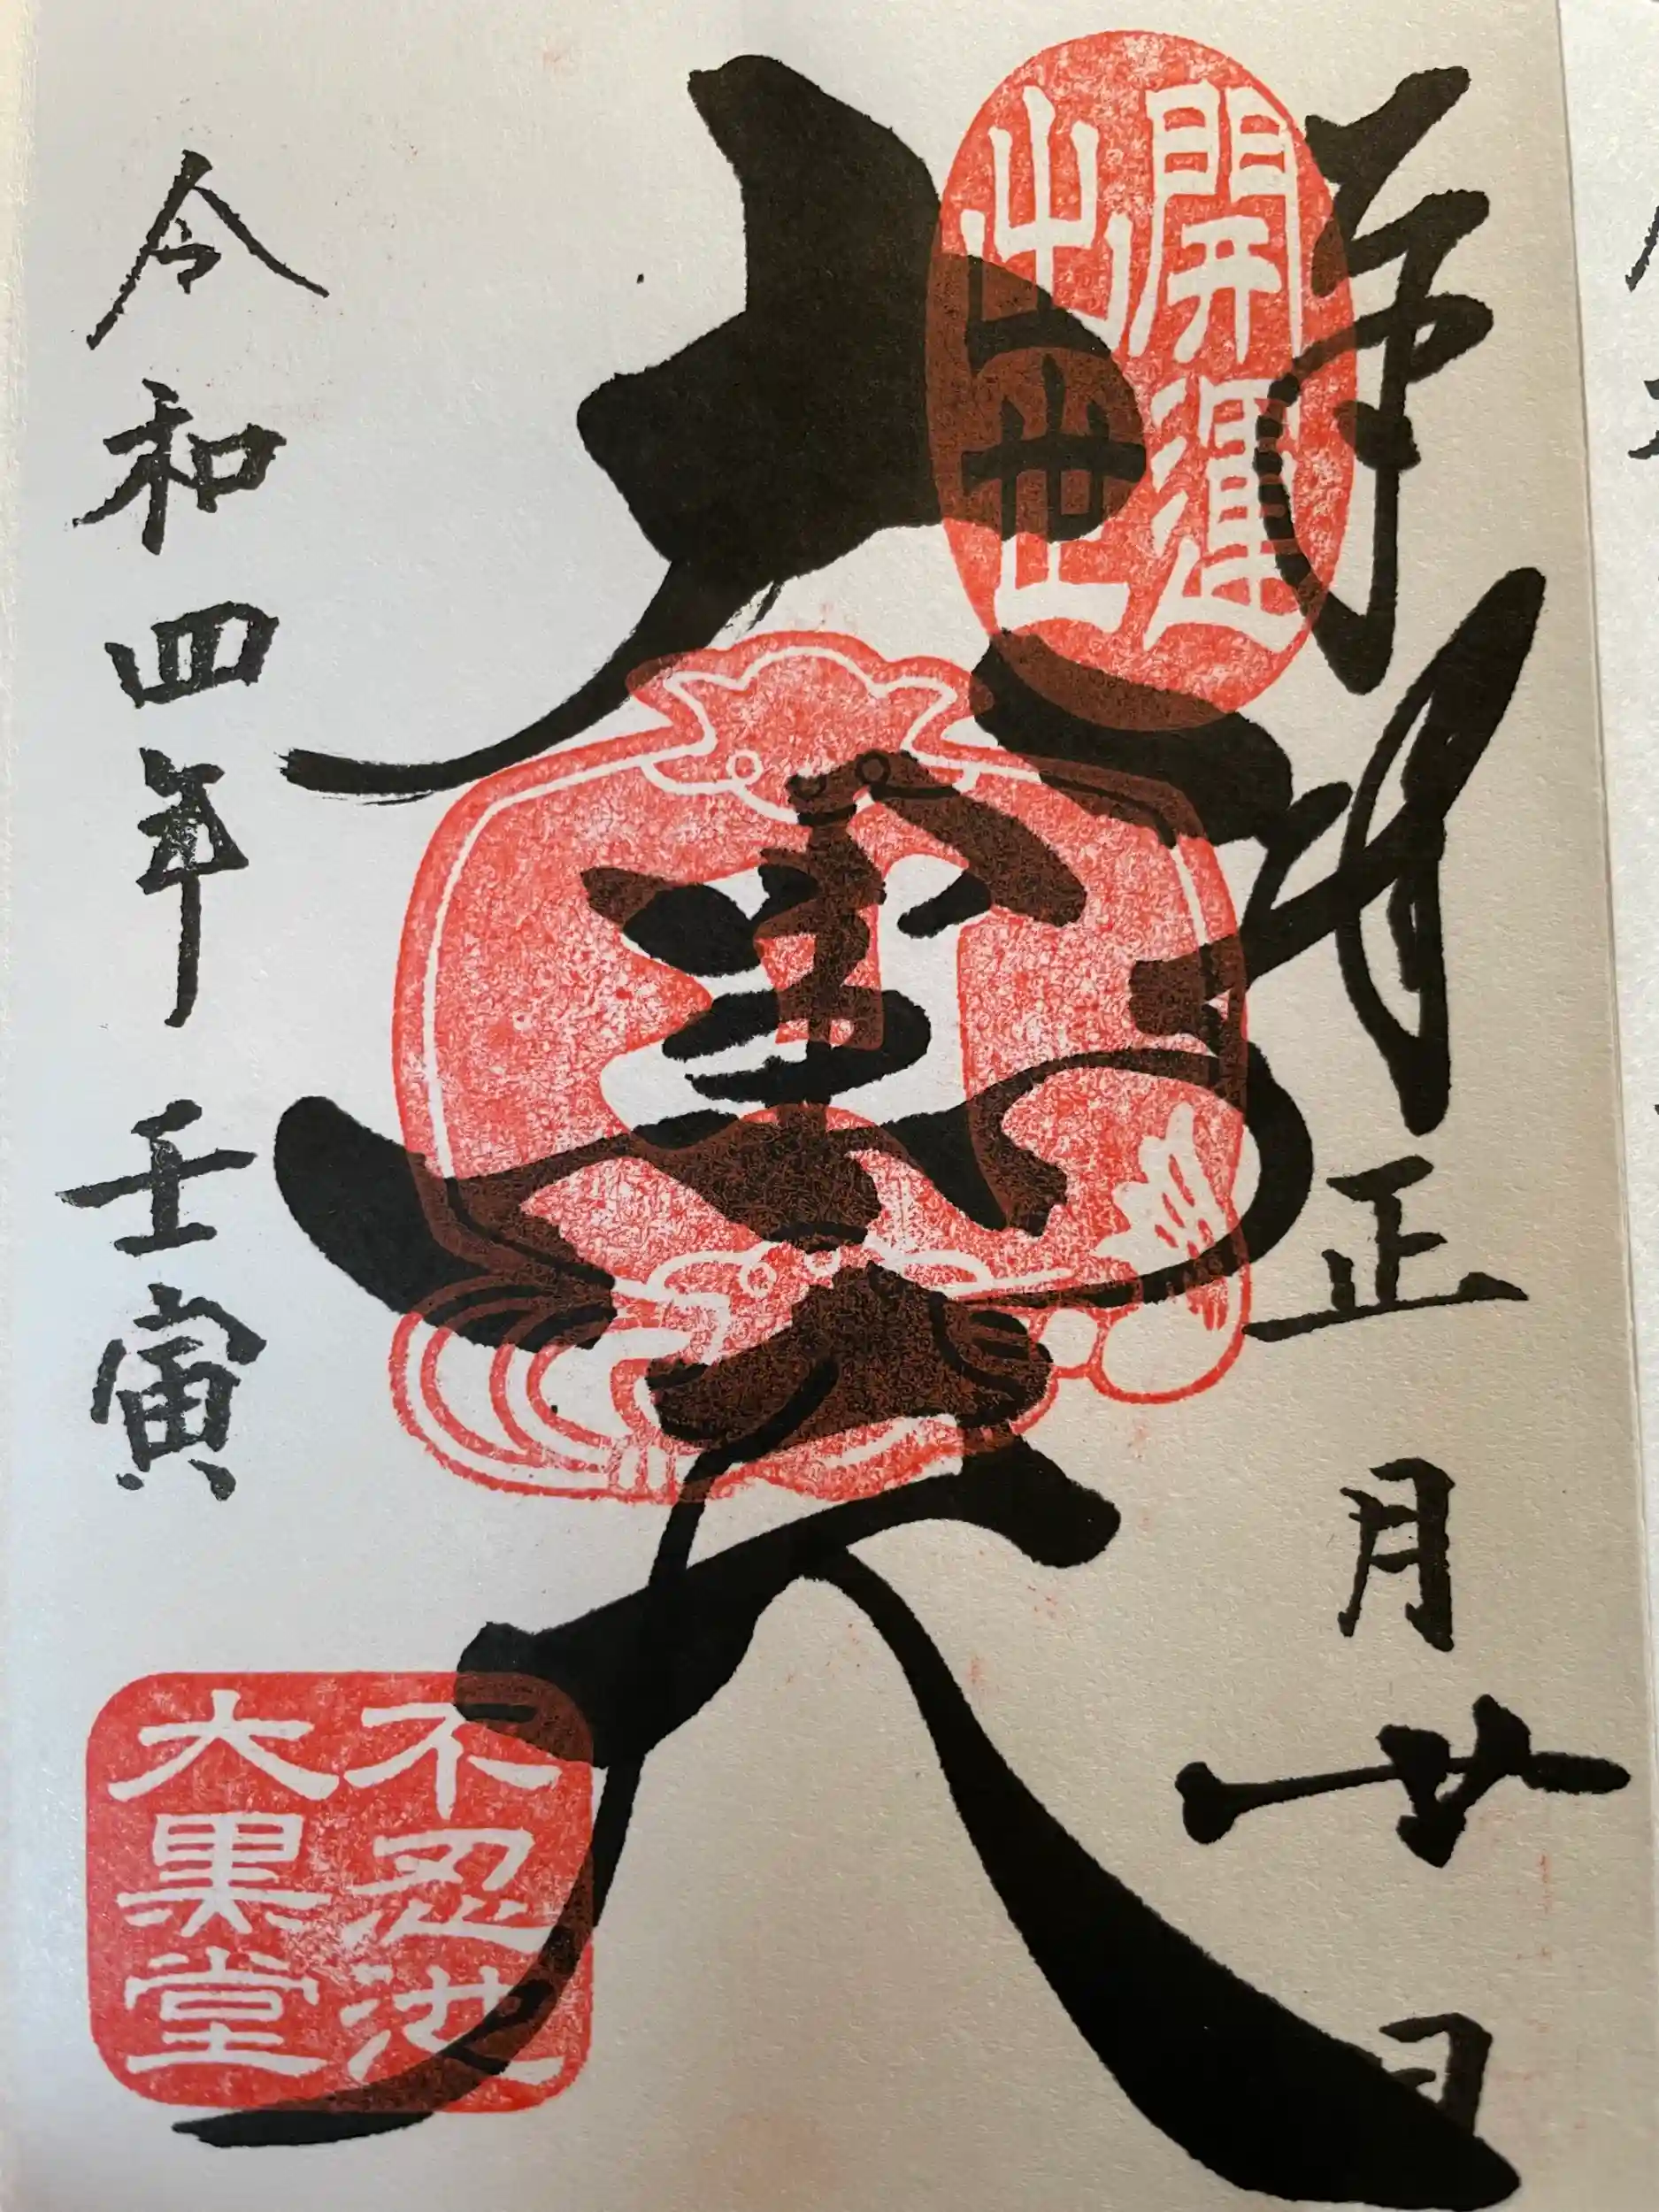 奉拝
正月廿日
開運
出世
大黒天
令和四年壬寅
不忍池
大黒堂